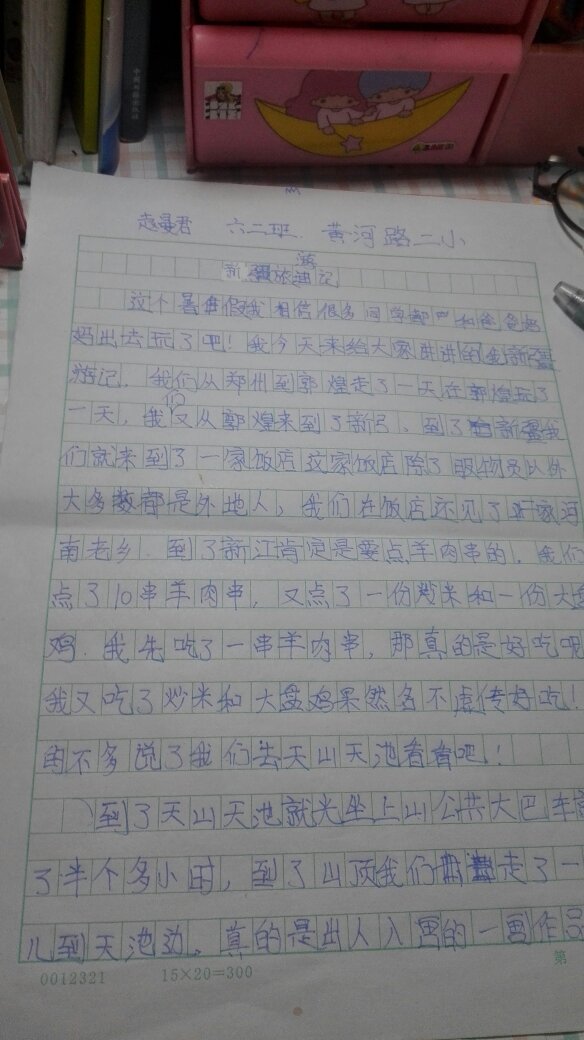 六二班 黄河路二小
新疆旅游记
这个暑假我相信很多同学都和爸爸妈
妈出去玩了吧！我今天来给大家讲讲我新疆
游记。我们从郑州到郭煌走了一天在郭煌玩了
一天，我们又从郭煌来到了新弓、到了新疆我
们就来到了一家饭店这家饭店除了服物员以外
大多数都是外地人，我们在饭店还见了好家河
南老乡．到了新江肯定是要点羊肉串的，我们
点了10串羊肉串，又点了一份炒米和一份大盘
鸡．我先吃了一串羊肉串，那真的是好吃吧
我又吃了炒米和大盘鸡果然名不虚传好吃！
不多说了我们去天山天池看看吧！
到了天山天池就先坐上山公共大巴车
了半个多小时，到了山顶我们走了一
儿到天池边。真的是出人入画的一画作品
0012321 15×20=300 第